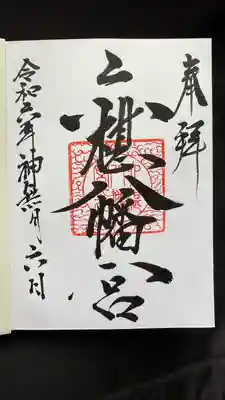 奉拝
上棋八幡宮
令和六年神無月六日